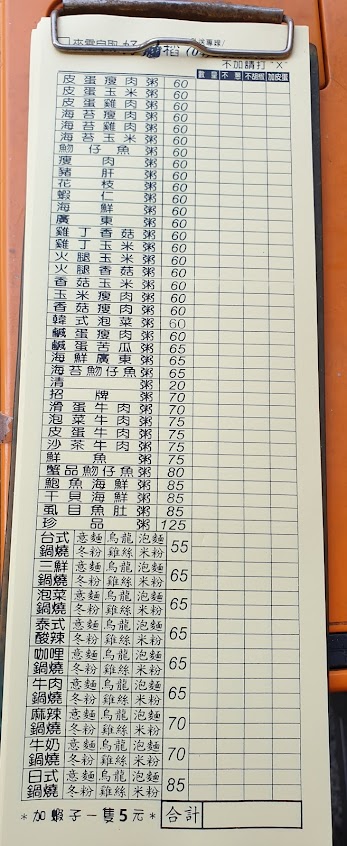 不加請打"X"
數量 不蔥 不胡椒 加皮蛋
皮蛋瘦肉粥 60
皮蛋玉米粥 60
皮蛋雞肉粥 60
海苔瘦肉粥 60
海苔雞肉粥 60
海苔玉米粥 60
魩仔魚粥 60
瘦肉粥 60
豬肝粥 60
花枝粥 60
蝦仁粥 60
海鮮粥 60
廣東粥 60
雞丁香菇粥 60
雞丁玉米粥 60
火腿玉米粥 60
火腿香菇粥 60
香菇玉米粥 60
玉米瘦肉粥 60
香菇瘦肉粥 60
韓式泡菜粥 60
鹹蛋瘦肉粥 60
鹹蛋苦瓜粥 65
海鮮廣東粥 65
海苔魩仔魚粥 65
清粥 20
招牌粥 70
滑蛋牛肉粥 70
泡菜牛肉粥 75
皮蛋牛肉粥 75
沙茶牛肉粥 75
鮮魚粥 75
蟹品魩仔魚粥 80
鮑魚海鮮粥 85
干貝海鮮粥 85
虱目魚肚粥 85
珍品粥 125
台式 意麵 烏龍 泡麵
鍋燒 冬粉 雞絲 米粉 55
三鮮 意麵 烏龍 泡麵
鍋燒 冬粉 雞絲 米粉 65
泡菜 意麵 烏龍 泡麵
鍋燒 冬粉 雞絲 米粉 65
泰式 意麵 烏龍 泡麵
酸辣 冬粉 雞絲 米粉 65
咖哩 意麵 烏龍 泡麵
鍋燒 冬粉 雞絲 米粉 65
牛肉 意麵 烏龍 泡麵
鍋燒 冬粉 雞絲 米粉 65
麻辣 意麵 烏龍 泡麵
鍋燒 冬粉 雞絲 米粉 70
牛奶 意麵 烏龍 泡麵
鍋燒 冬粉 雞絲 米粉 70
日式 意麵 烏龍 泡麵
鍋燒 冬粉 雞絲 米粉 85
*加蝦子一隻5元* 合計